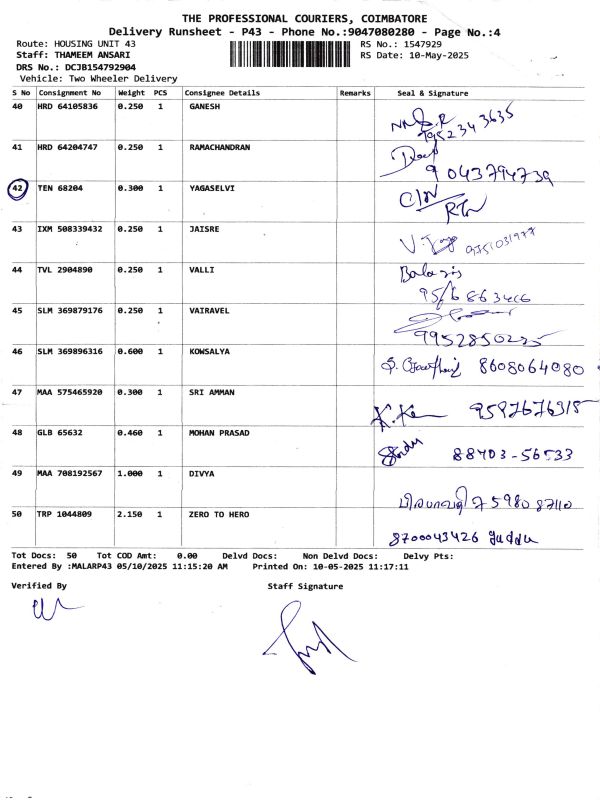 THE PROFESSIONAL COURIERS, COIMBATORE
Delivery Runsheet - P43 - Phone No.:9047080280 - Page No.:4
Route: HOUSING UNIT 43 RS No.: 1547929
Staff: THAMEEM ANSARI RS Date: 10-May-2025
DRS No.: DCJB154792904
Vehicle: Two Wheeler Delivery
S No Consignment No Weight PCS Consignee Details Remarks Seal & Signature
40 HRD 64105836 0.250 1 GANESH
9952343635
41 HRD 64204747 0.250 1 RAMACHANDRAN
9043794739
42 TEN 68204 0.300 1 YAGASELVI
C/N
RTN
43 IXM 508339432 0.250 1 JAISRE
9751031977
44 TVL 2904890 0.250 1 VALLI
45 SLM 369879176 0.250 1 VAIRAVEL
9952850225
46 SLM 369896316 0.600 1 KOWSALYA 8608064080
47 MAA 575465920 0.300 1 SRI AMMAN
48 GLB 65632 0.460 1 MOHAN PRASAD
88703-56533
49 MAA 708192567 1.000 1 DIVYA
7598087110
50 TRP 1044809 2.150 1 ZERO TO HERO
8700043426 guddu
Tot Docs: 50 Tot COD Amt: 0.00 Delvd Docs: Non Delvd Docs: Delvy Pts:
Entered By :MALARP43 05/10/2025 11:15:20 AM Printed On: 10-05-2025 11:17:11
Verified By Staff Signature